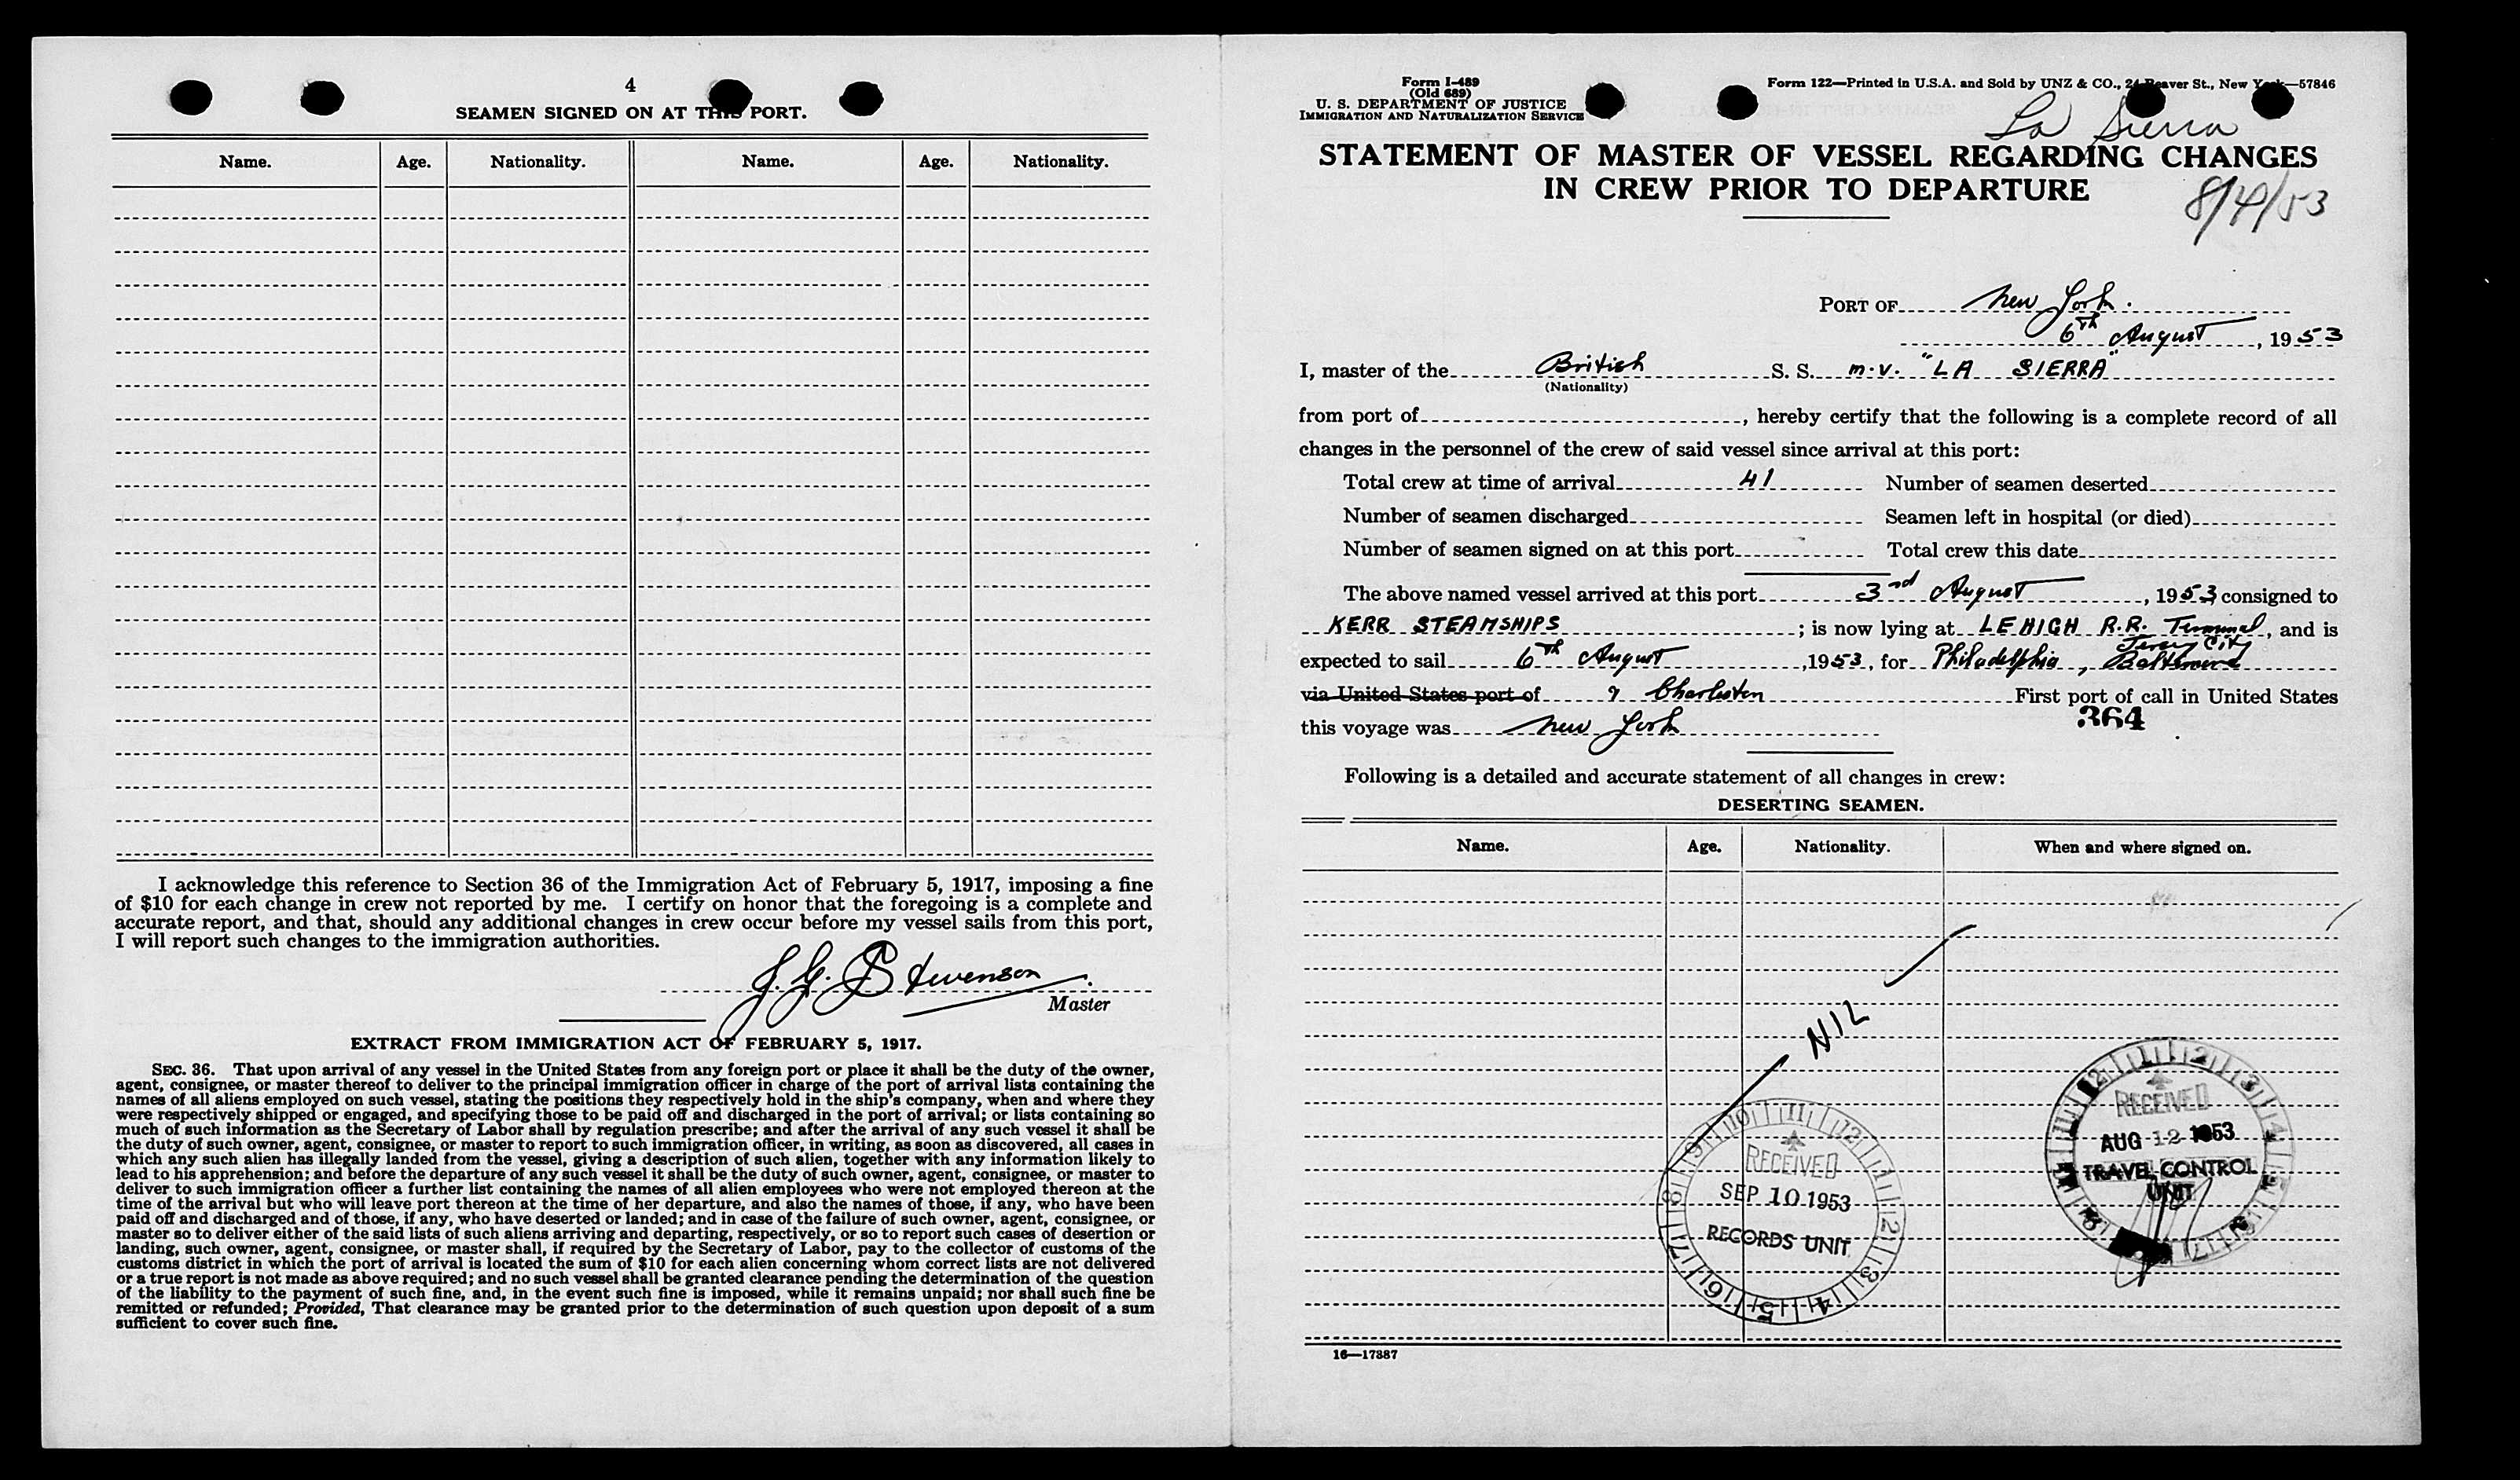 4
SEAMEN SIGNED ON AT THIS PORT.
Name. Age. Nationality. Name. Age. Nationality.
I acknowledge this reference to Section 36 of the Immigration Act of February 5, 1917, imposing a fine
of $10 for each change in crew not reported by me. I certify on honor that the foregoing is a complete and
accurate report, and that, should any additional changes in crew occur before my vessel sails from this port,
I will report such changes to the immigration authorities.
J. G. Stevenson
Master
EXTRACT FROM IMMIGRATION ACT OF FEBRUARY 5, 1917.
SEC. 36. That upon arrival of any vessel in the United States from any foreign port or place it shall be the duty of the owner,
agent, consignee, or master thereof to deliver to the principal immigration officer in charge of the port of arrival lists containing the
names of all aliens employed on such vessel, stating the positions they respectively hold in the ship's company, when and where they
were respectively shipped or engaged, and specifying those to be paid off and discharged in the port of arrival; or lists containing so
much of such information as the Secretary of Labor shall by regulation prescribe; and after the arrival of any such vessel it shall be
the duty of such owner, agent, consignee, or master to report to such immigration officer, in writing, as soon as discovered, all cases in
which any such alien has illegally landed from the vessel, giving a description of such alien, together with any information likely to
lead to his apprehension; and before the departure of any such vessel it shall be the duty of such owner, agent, consignee, or master to
deliver to such immigration officer a further list containing the names of all alien employees who were not employed thereon at the
time of the arrival but who will leave port thereon at the time of her departure, and also the names of those, if any, who have been
paid off and discharged and of those, if any, who have deserted or landed; and in case of the failure of such owner, agent, consignee, or
master so to deliver either of the said lists of such aliens arriving and departing, respectively, or so to report such cases of desertion or
landing, such owner, agent, consignee, or master shall, if required by the Secretary of Labor, pay to the collector of customs of the
customs district in which the port of arrival is located the sum of $10 for each alien concerning whom correct lists are not delivered
or a true report is not made as above required; and no such vessel shall be granted clearance pending the determination of the question
of the liability to the payment of such fine, and, in the event such fine is imposed, while it remains unpaid; nor shall such fine be
remitted or refunded; Provided, That clearance may be granted prior to the determination of such question upon deposit of a sum
sufficient to cover such fine.
Form I-489
(Old 689)
U. S. DEPARTMENT OF JUSTICE
IMMIGRATION AND NATURALIZATION SERVICE
Form 122—Printed in U.S.A. and Sold by UNZ & CO., 24 Beaver St., New York—57846
La Sierra
STATEMENT OF MASTER OF VESSEL REGARDING CHANGES
IN CREW PRIOR TO DEPARTURE
8/4/53
PORT OF New York.
6th August, 1953
I, master of the British S. S. m.v. "LA SIERRA"
(Nationality)
from port of , hereby certify that the following is a complete record of all
changes in the personnel of the crew of said vessel since arrival at this port:
Total crew at time of arrival 41 Number of seamen deserted
Number of seamen discharged Seamen left in hospital (or died)
Number of seamen signed on at this port Total crew this date
The above named vessel arrived at this port 3rd August, 1953 consigned to
KERR STEAMSHIPS ; is now lying at LEHIGH R.R. Terminal, and is
Jersey City
expected to sail 6th August, 1953, for Philadelphia, Baltimore
via United States port of & Charleston First port of call in United States
this voyage was New York
364
Following is a detailed and accurate statement of all changes in crew:
DESERTING SEAMEN.
Name. Age. Nationality. When and where signed on.
NIL
RECEIVED
SEP 10 1953
RECORDS UNIT
RECEIVED
AUG 12 1953
TRAVEL CONTROL
UNIT
16—17887